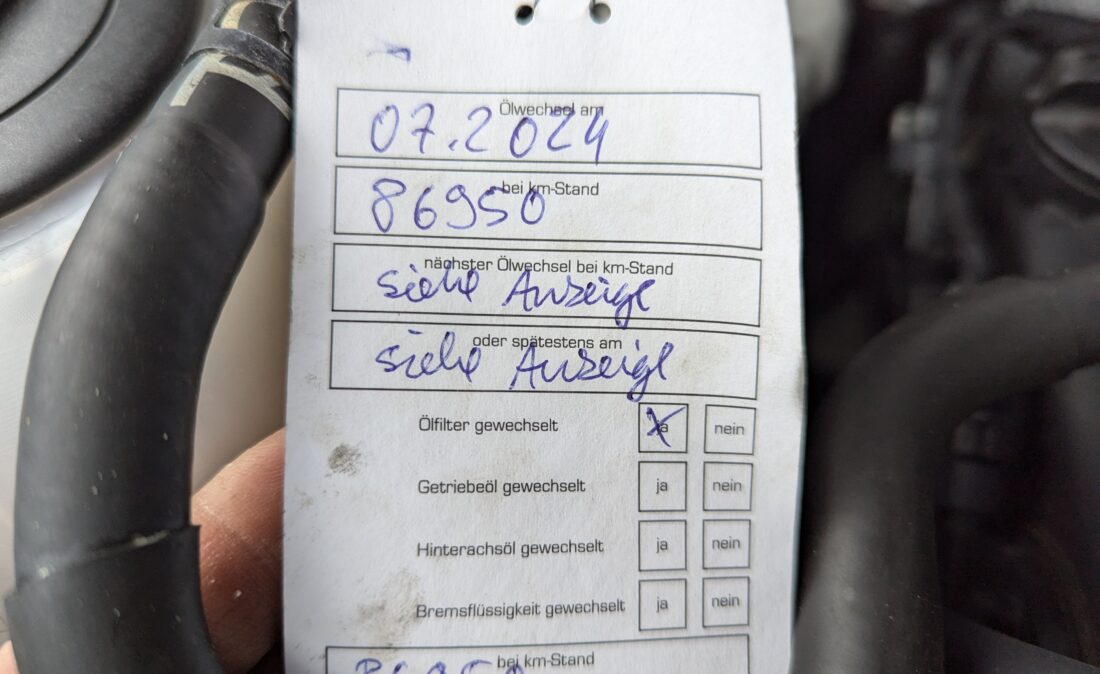 Ölwechsel am
07.2024
bei km-Stand
86950
nächster Ölwechsel bei km-Stand
siehe Anzeige
oder spätestens am
siehe Anzeige
Ölfilter gewechselt ja nein
Getriebeöl gewechselt ja nein
Hinterachsöl gewechselt ja nein
Bremsflüssigkeit gewechselt ja nein
bei km-Stand